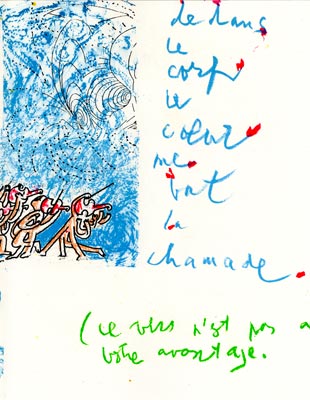 dedans
le
corps
le
cœur
me
bat
la
chamade.
(ce vers n'est pas a
votre avantage.